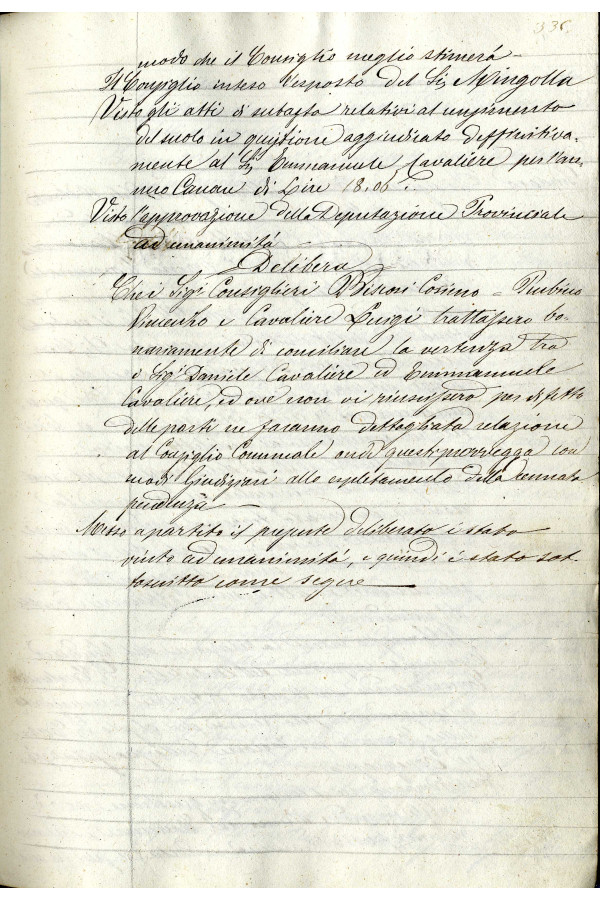 336
modo che il Consiglio meglio stimerà -
Il Consiglio inteso l'esposto del Sig. Mingolla
Visto gli atti di subasta relativi al
del suolo in quistione aggiudicato deffinitiva-
mente al Sig. Emmanuele Cavaliere per l'an-
nuo Canone di Lire 18.06.
Visto l'approvazione della Deputazione Provinciale
ad unanimità
Delibera
Che i Sigi. Consiglieri Cosimo = Rubino
Vincenzo e Cavaliere Luigi trattassero bo-
nariamente di conciliare la vertenza tra
i Sigi. Daniele Cavaliere ed Emmanuele
Cavaliere, ed ove non vi riuscissero per difetto
delle parti ne faranno dettagliata relazione
al Consiglio Comunale onde questi provvegga coi
modi Giudiziarî allo espletamento della cennata
pendenza
Messo a partito il presente deliberato è stato
vinto ad unanimità, e quindi è stato sot-
toscritto come segue